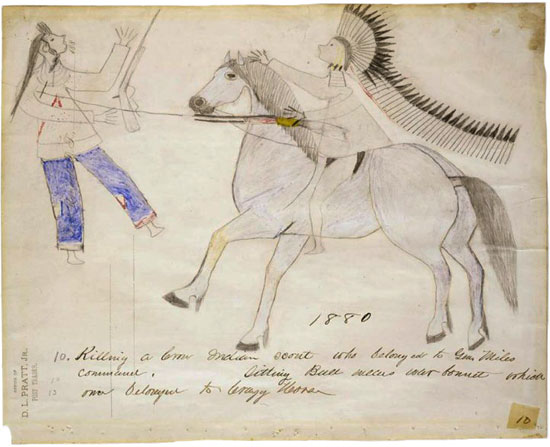 1880
10. Killing a Crow Indian scout who belonged to Gen. Miles
command. Sitting Bull wears war bonnet which
once belonged to Crazy Horse
D. L. PRATT, JR.
POST TRADER.
10